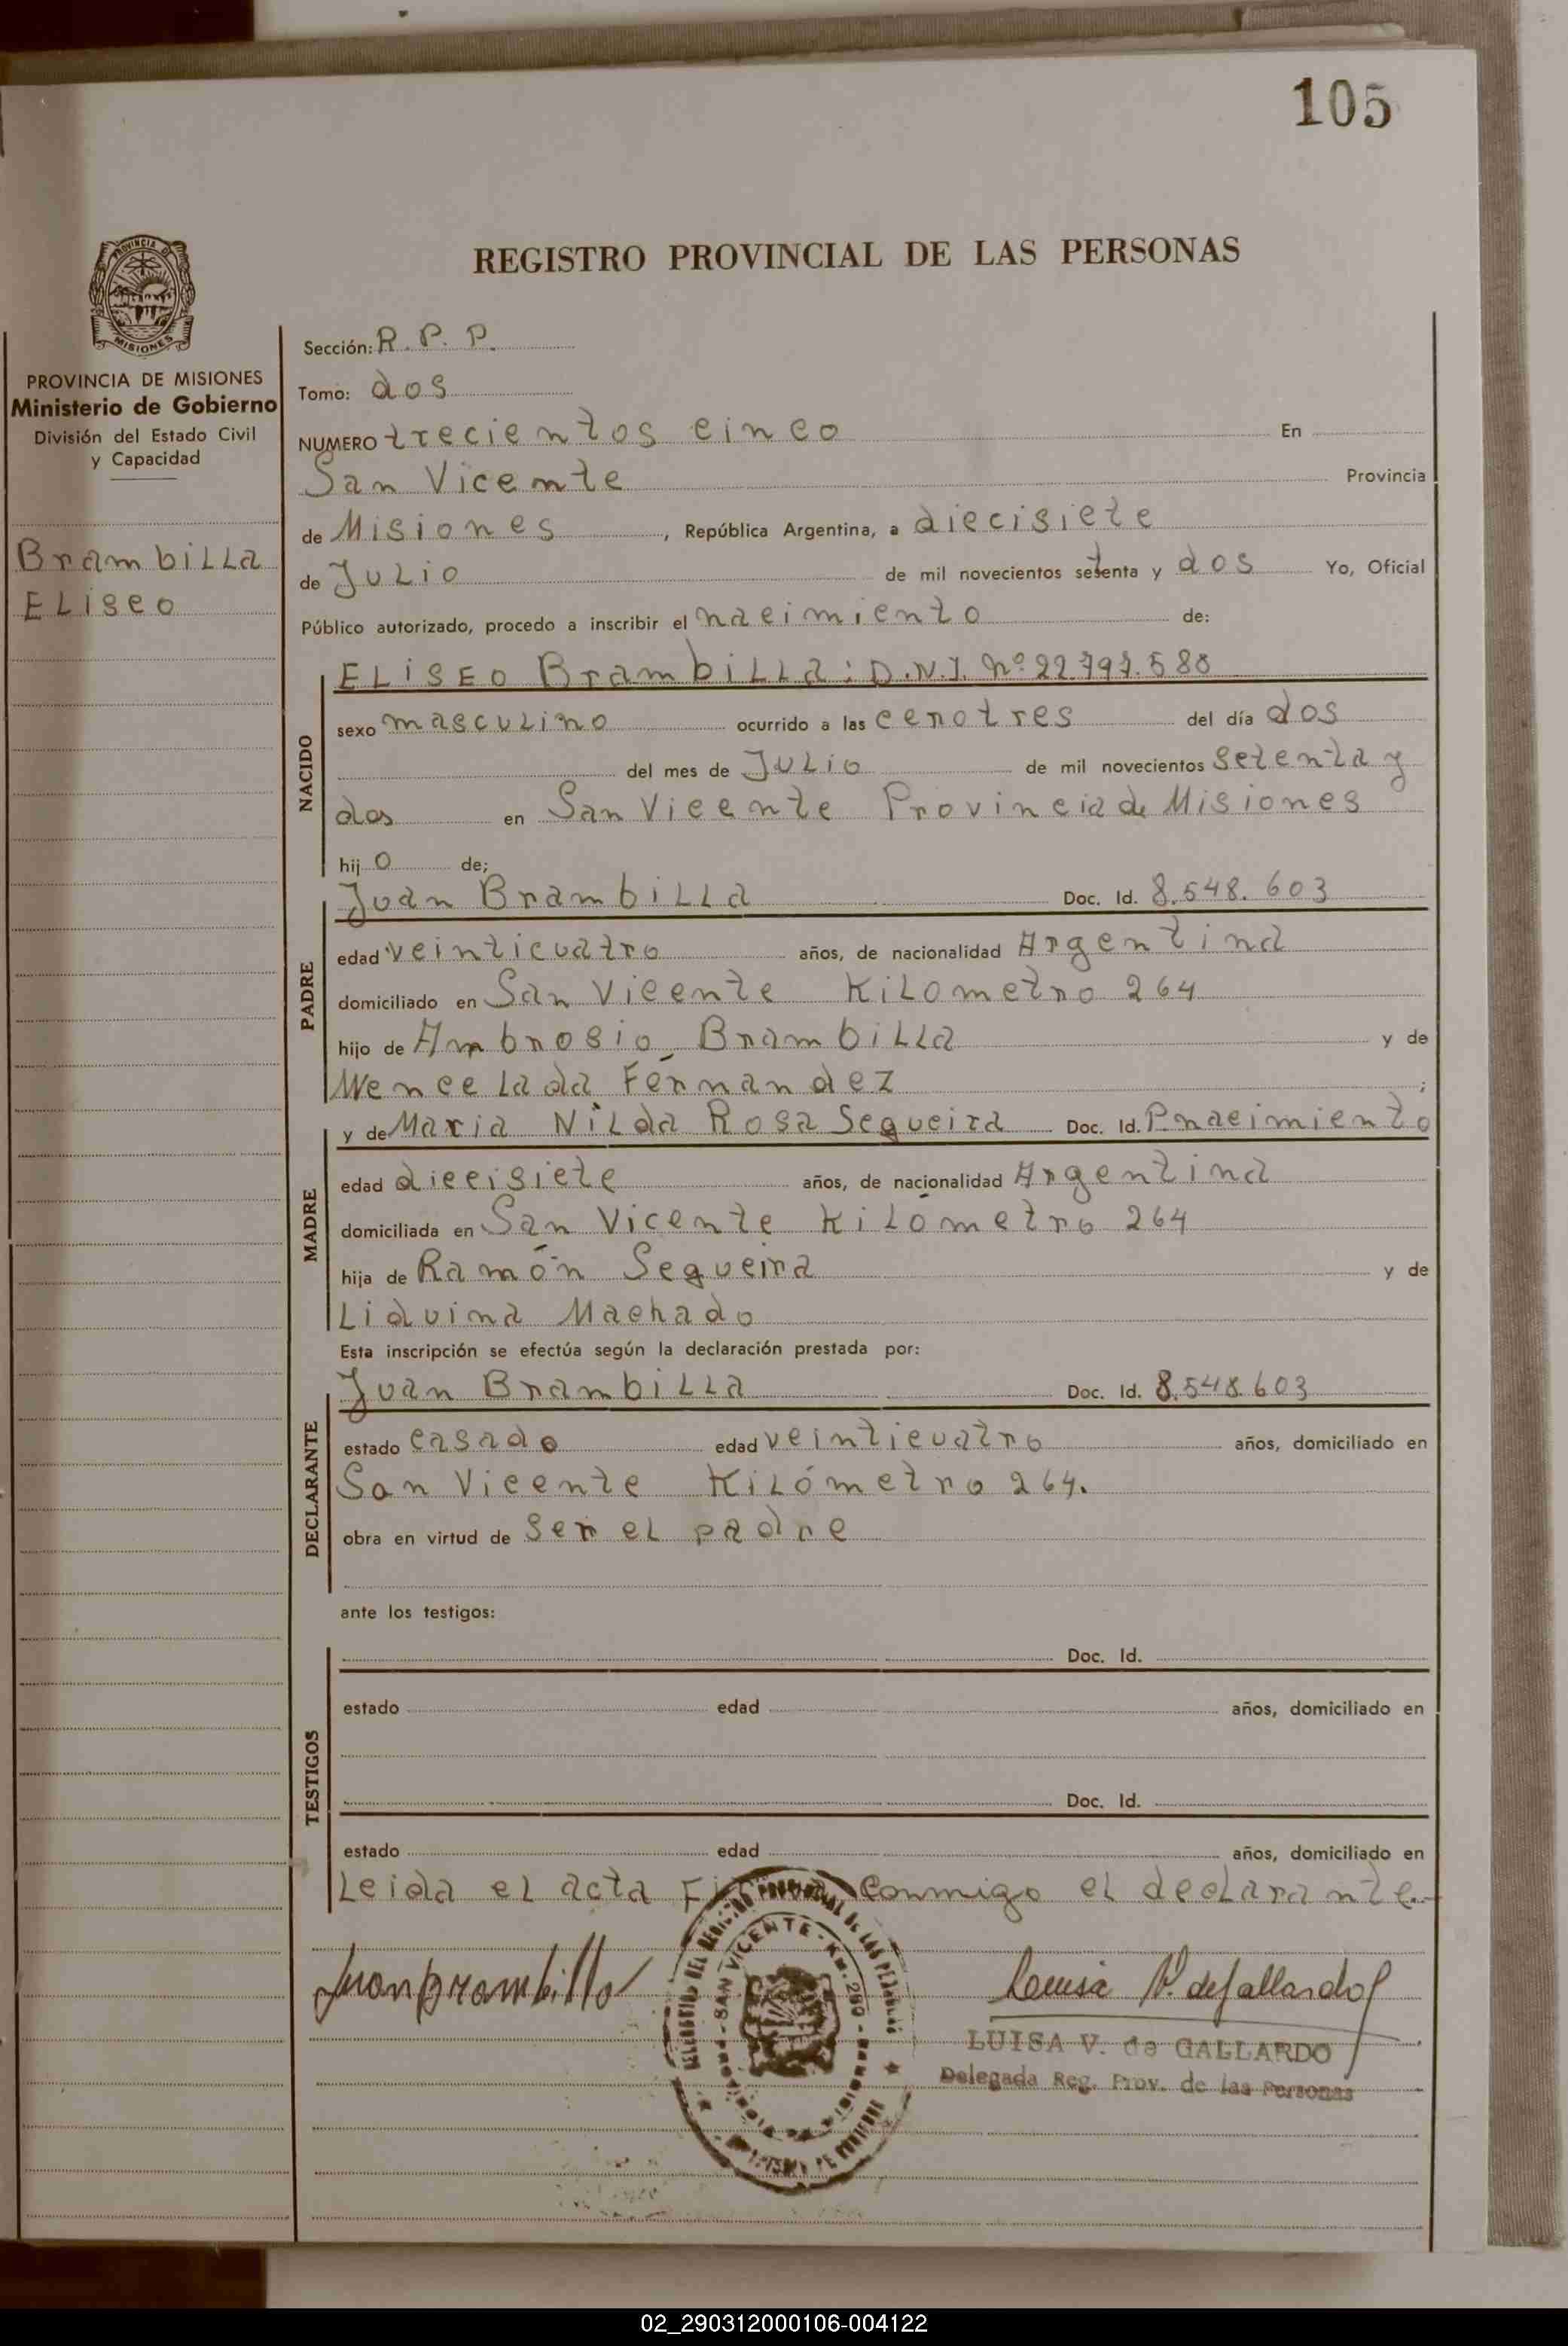 105
REGISTRO PROVINCIAL DE LAS PERSONAS
PROVINCIA DE
MISIONES
PROVINCIA DE MISIONES
Ministerio de Gobierno
División del Estado Civil
y Capacidad
Brambilla
Eliseo
Sección: R. P. P.
Tomo: dos
NUMERO trecientos cinco En
San Vicente Provincia
de Misiones, República Argentina, a diecisiete
de Julio de mil novecientos setenta y dos Yo, Oficial
Público autorizado, procedo a inscribir el nacimiento de:
NACIDO
Eliseo Brambilla: D.N.I. nº
sexo masculino ocurrido a las cerotres del día dos
del mes de Julio de mil novecientos setenta y
dos en San Vicente Provincia de Misiones
hijo de;
PADRE
Juan Brambilla Doc. Id. 8.548.603
edad veinticuatro años, de nacionalidad Argentina
domiciliado en San Vicente Kilometro 264
hijo de Ambrosio Brambilla y de
Wencelada Fernandez ;
MADRE
y de Maria Nilda Rosa Segueira Doc. Id. P.nacimiento
edad diecisiete años, de nacionalidad Argentina
domiciliada en San Vicente Kilómetro 264
hija de Ramón Segueira y de
Liduina Machado
Esta inscripción se efectúa según la declaración prestada por:
DECLARANTE
Juan Brambilla Doc. Id. 8.548.603
estado casado edad veinticuatro años, domiciliado en
San Vicente Kilómetro 264.
obra en virtud de ser el padre
ante los testigos:
TESTIGOS
Doc. Id.
estado edad años, domiciliado en
Doc. Id.
estado edad años, domiciliado en
Leida el acta conmigo el declarante.-
Juan Brambilla
Luisa V. de Gallardo
LUISA V. de GALLARDO
Delegada Reg. Prov. de las Personas
SAN VICENTE - Km. 260
02_290312000106-004122